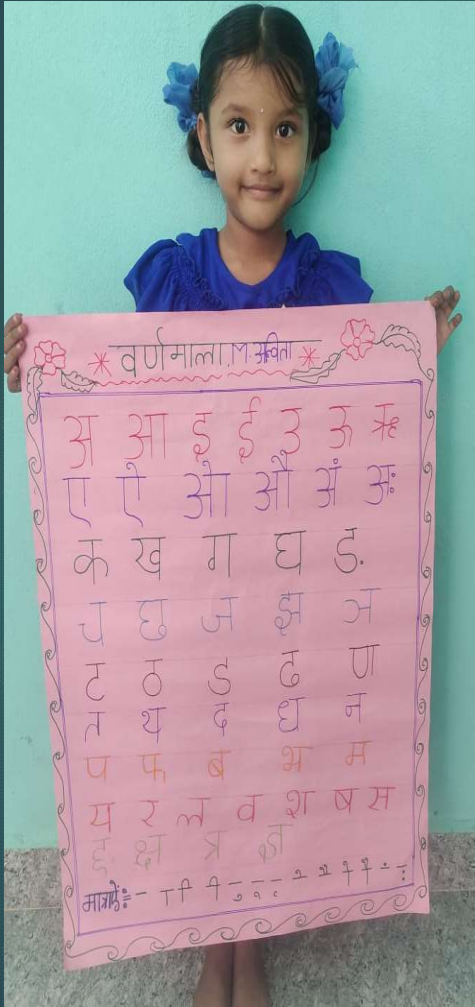 वर्णमाला M. कविता
अ आ इ ई उ ऊ ऋ
ए ऐ ओ औ अं अः
क ख ग घ ङ
च छ ज झ ञ
ट ठ ड ढ ण
त थ द ध न
प फ ब भ म
य र ल व श ष स
ह क्ष त्र ज्ञ
मात्राएँ:- ा ि ी ु ू ृ े ै ो ौ ं ः